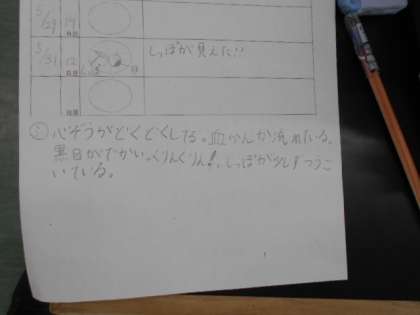 5/29 19
5/31 12 しっぽが見えた!!
心ぞうがどくどくしてる。血かんが流れている。
黒目がでかい。くりんくりん!しっぽが少しずつうご
いている。